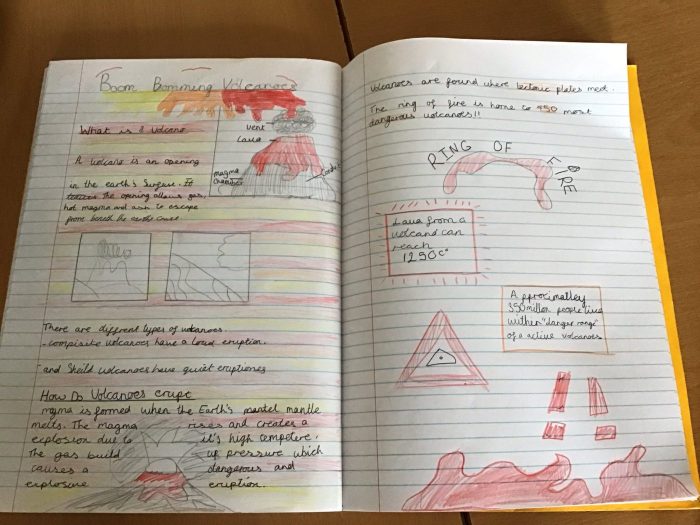 Boom Bomming Volcanoes
What is a Volcano
vent
Lava
magma
chamber
A volcano is an opening
in the earth's Surfuse. It
the opening allows gas,
hot magma and ash to escape
from
There are different types of volcanoes.
- composite volcanoes have a loud eruption.
and Sheild volcanoes have quiet eruptiones
How Do Volcanoes erupt
magma is formed when the Earth's mantel mantle
melts. The magma rises and creates a
explosion due to it's high tempetere,
The gas build up pressure which
causes a dangerous and
explosive eruption.
Volcanoes are found where tectonic plates meet.
The ring of fire is home to 450 most
dangerous volcanoes!!
RING OF FIRE
Lava from a
volcano can
reach
1250 C°
Approximatley
350 million people live
within "danger range"
of a active volcanoes